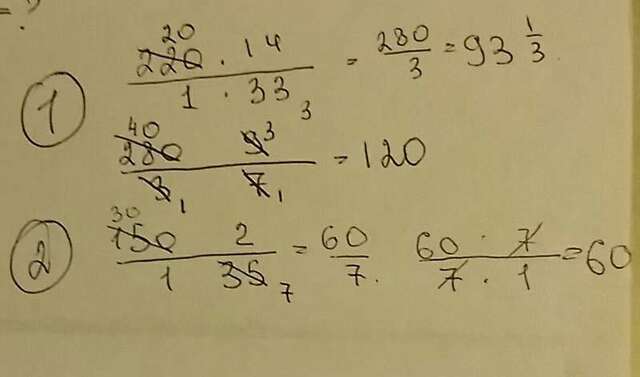 = ?
① 20
220 · 14 / 1 · 33 3 = 280/3 = 93 1/3
40 3
280 9 / 3 1 7 1 = 120
② 30
150 2 / 1 35 7 = 60/7. 60 · 7 / 7 · 1 = 60